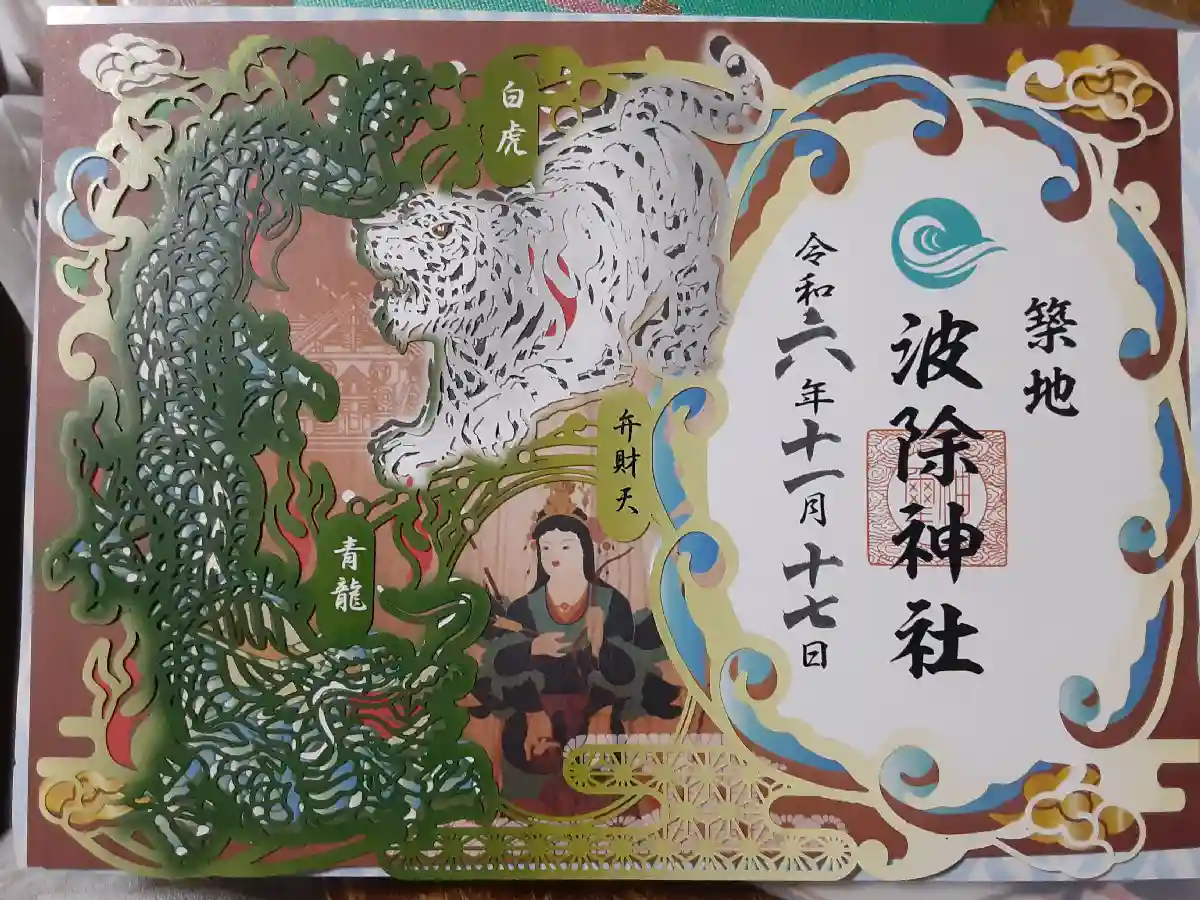 築地
波除神社
令和六年十一月十七日
白虎
弁財天
青龍